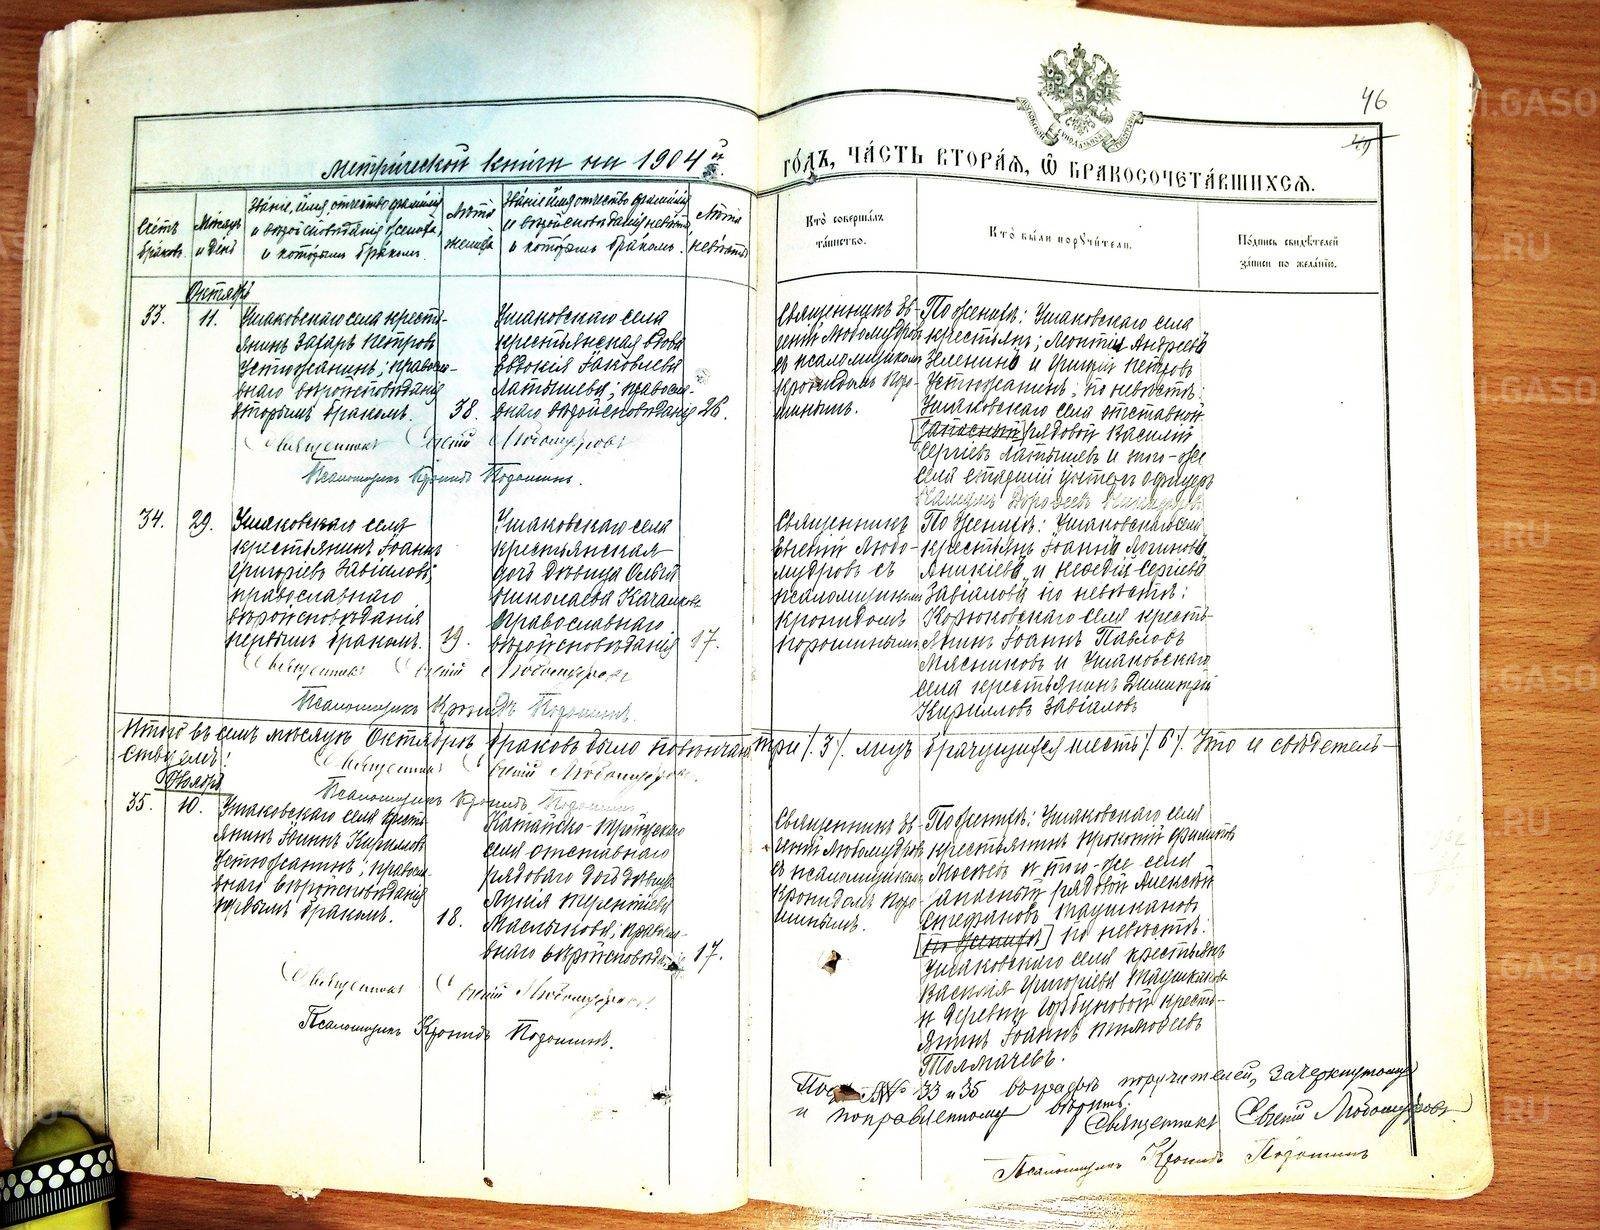 46
метрической книги на 1904й
го́дъ, ча́сть втора́я, ѡ҆ бракосочета́вшихсѧ.
Счетъ браковъ.
Мѣсяцъ и день
Званіе, имя, отчество, фамилія
и вѣроисповѣданіе жениха,
и которымъ бракомъ.
Лѣта
жениха
Званіе имя отчество фамилія
и вѣроисповѣданіе невѣсты
и которымъ бракомъ.
Лѣта
невѣсты
Кто̀ соверша́лъ
та́инство.
Кто̀ бы́ли порꙋчи́тели.
По́дпись свидѣ́телей
за́писи по жела́нїю.
Октябрь
33.
11.
Ушаковскаго села крестья-
янинъ Захаръ Петровъ
Устюжанинъ; правосла-
внаго вѣроисповѣданія
вторымъ бракомъ.
38.
Ушаковскаго села
крестьянская вдова
Евдокія Іаковлева
Латышева, правосла-
внаго вѣроисповѣданія
26.
Священникъ Ев-
геній Любомудровъ
съ псаломщикомъ
Кронидомъ Поро-
шинымъ.
По женихѣ: Ушаковскаго села
крестьяне; Леонтій Андреевъ
Зеленинъ и Григорій Петровъ
Устюжанинъ, по невѣстѣ:
Ушаковскаго села отставной
[запасный] рядовой Василій
Сергіевъ Латышевъ и того-же
села старшій унтеръ офицеръ
Священникъ Евгеній Любомудровъ
Псаломщикъ Кронидъ Порошинъ.
34.
29.
Ушаковскаго села
крестьянинъ Іоаннъ
Григоріевъ Завіаловъ
православнаго
вѣроисповѣданія
первымъ бракомъ.
19.
Ушаковскаго села
крестьянская
дочь дѣвица Ольга
Николаева Качалкова
Православнаго
вѣроисповѣданія
17.
Священникъ
Евгеній Любо-
мудровъ съ
псаломщикомъ
Кронидомъ
Порошинымъ
По женихѣ: Ушаковскаго села
крестьяне Іоаннъ Логиновъ
Аникіевъ и Сергіевъ
Завіаловъ по невѣстѣ:
Корюковскаго села кресть-
янинъ Іоаннъ Павловъ
Мясниковъ и Ушаковскаго
села крестьянинъ Димитрій
Кирилловъ Завіаловъ
Священникъ Евгеній Любомудровъ
Псаломщикъ Кронидъ Порошинъ.
Итого въ семъ мѣсяцѣ Октябрѣ браковъ было повѣнчано три /3/. лицъ брачущихся шесть /6/. Что и свѣдетель-
ствуемъ:
Священникъ Евгеній Любомудровъ.
Псаломщикъ Кронидъ Порошинъ
Ноябрь
35.
10.
Ушаковскаго села кресть-
янинъ Іоаннъ Кириловъ
Устюжанинъ; правосла-
внаго вѣроисповѣданія
первымъ бракомъ.
18.
Катайско-Троицкаго
села отставнаго
рядоваго дочь дѣвица
Терентіева
Маслыкова; правосла-
внаго вѣроисповѣда.
17.
Священникъ Ев-
геній Любомудровъ
съ псаломщикомъ
Кронидомъ Поро-
шинымъ.
По женихѣ: Ушаковскаго села
крестьянинъ Прокопій Филиповъ
и того-же села
запасный рядовой Алексій
Стефановъ Таушкановъ
[по женихѣ] по невѣстѣ:
Ушаковскаго села крестьянъ
Василія Григоріева Таушканова
и деревни Горбуновой кресть-
янинъ Іоаннъ Тимоѳеевъ
Толмачевъ.
Священникъ Евгеній Любомудровъ.
Псаломщикъ Кронидъ Порошинъ.
Под № 33 и 35 въ графѣ поручителей, зачеркнутому
и поправленному вѣрить.
Священникъ Евгеній Любомудровъ
Псаломщикъ Кронидъ Порошинъ